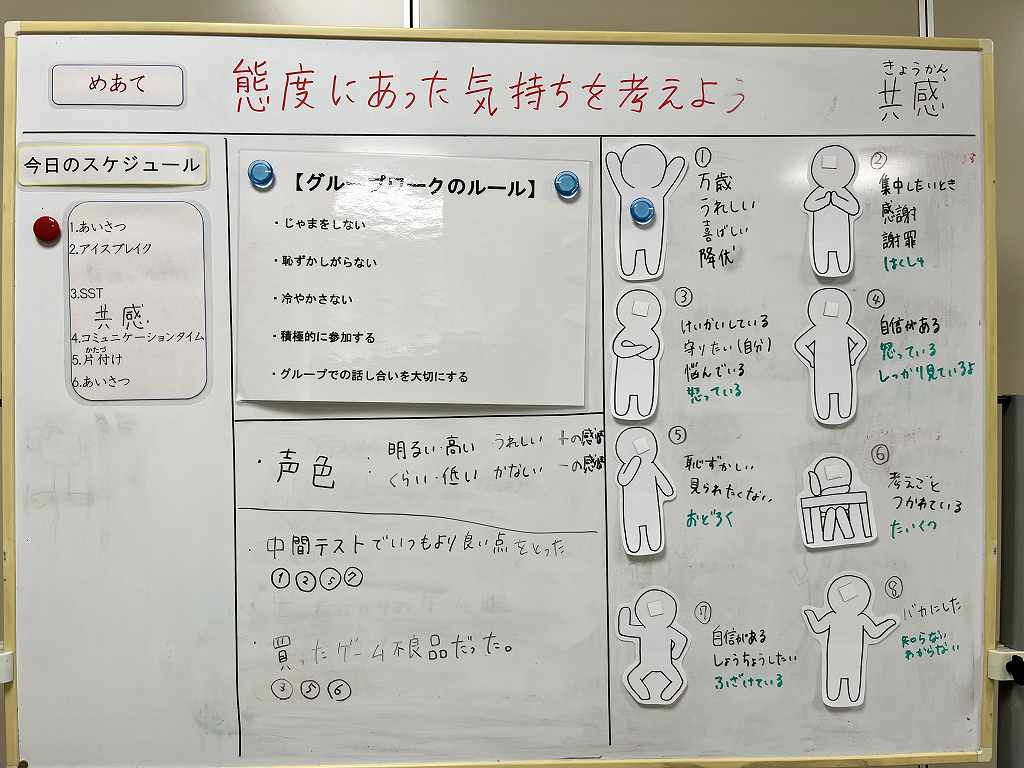 めあて
態度にあった気持ちを考えよう
きょうかん
共感
今日のスケジュール
1.あいさつ
2.アイスブレイク
3.SST
共感
4.コミュニケーションタイム
かたづ
5.片付け
6.あいさつ
【グループワークのルール】
・じゃまをしない
・恥ずかしがらない
・冷やかさない
・積極的に参加する
・グループでの話し合いを大切にする
・声色
・明るい・高い うれしい ＋の感情
くらい・低い かなしい －の感情
・中間テストでいつもより良い点をとった
① ② ⑤ ⑦
・買ったゲーム不良品だった。
③ ⑤ ⑥
①
万歳
うれしい
喜ばしい
降伏
②
集中したいとき
感謝
謝罪
はくしゅ
③
けいかいしている
守りたい(自分)
悩んでいる
怒っている
④
自信がある
怒っている
しっかり見ているよ
⑤
恥ずかしい
見られたくない
おどろく
⑥
考えごと
つかれている
たいくつ
⑦
自信がある
しょうちょうしたい
ふざけている
⑧
バカにした
知らない
わからない